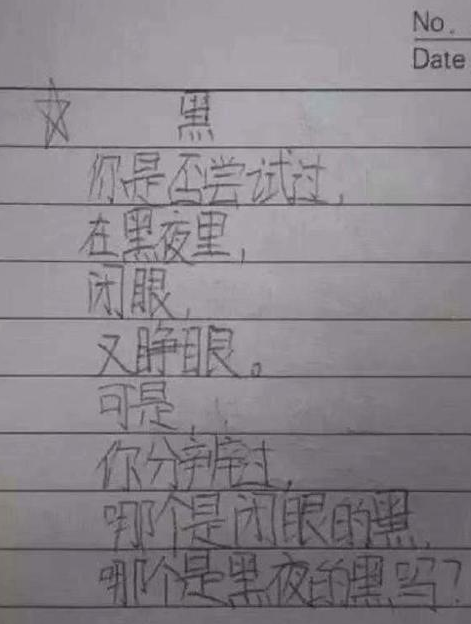 No.
Date
☆ 黑
你是否尝试过,
在黑夜里,
闭眼,
又睁眼。
可是,
你分辨过,
哪个是闭眼的黑,
哪个是黑夜的黑吗?